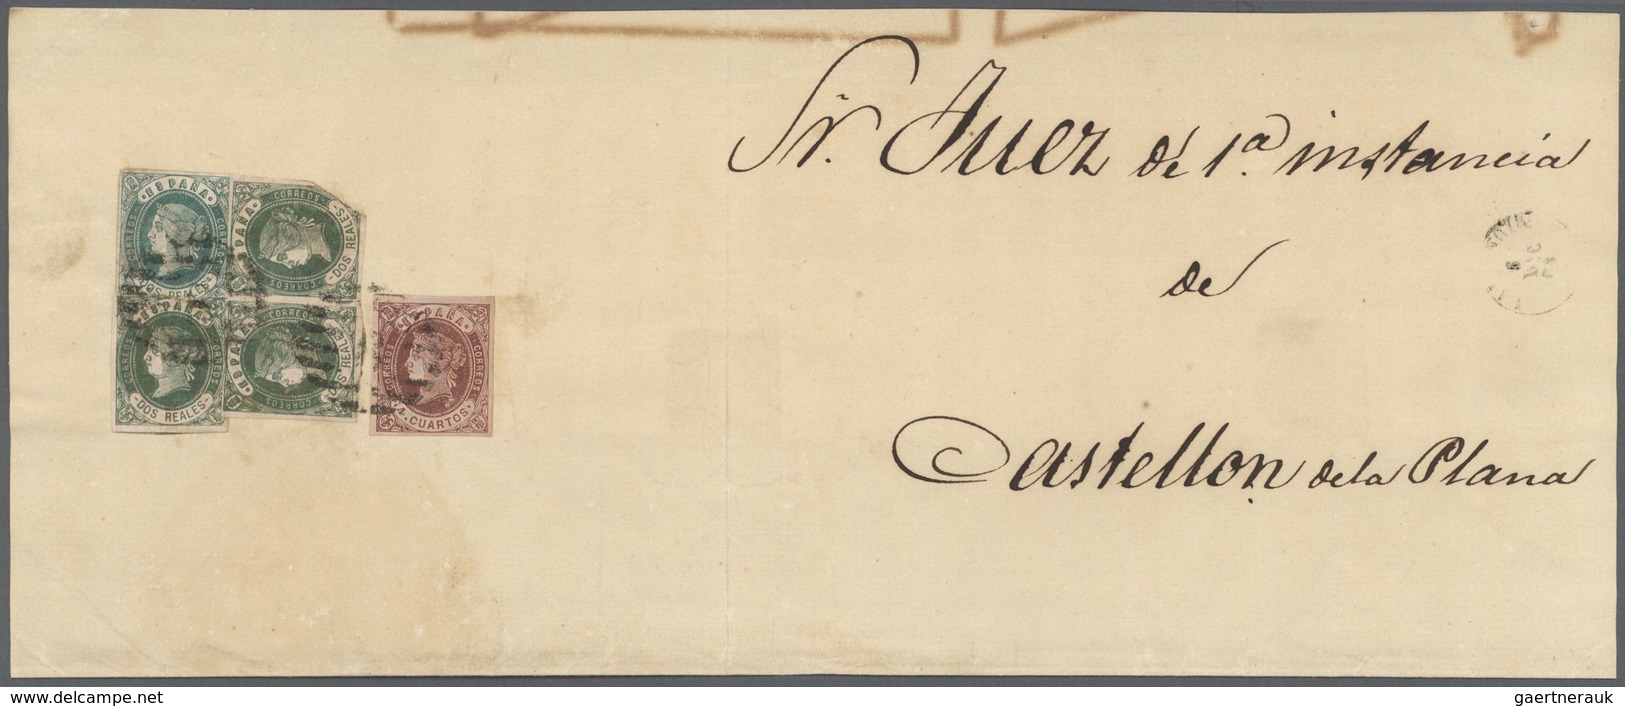 Sr. Juez de 1ª instancia
de
Castellon de la Plana
ESPAÑA
CORREOS CORREOS
DOS REALES
ESPAÑA
CORREOS CORREOS
DOS REALES
ESPAÑA
CORREOS CORREOS
DOS REALES
ESPAÑA
CORREOS CORREOS
DOS REALES
ESPAÑA
CORREOS CORREOS
4. CUARTOS
delcampe.net
gaertnerauk